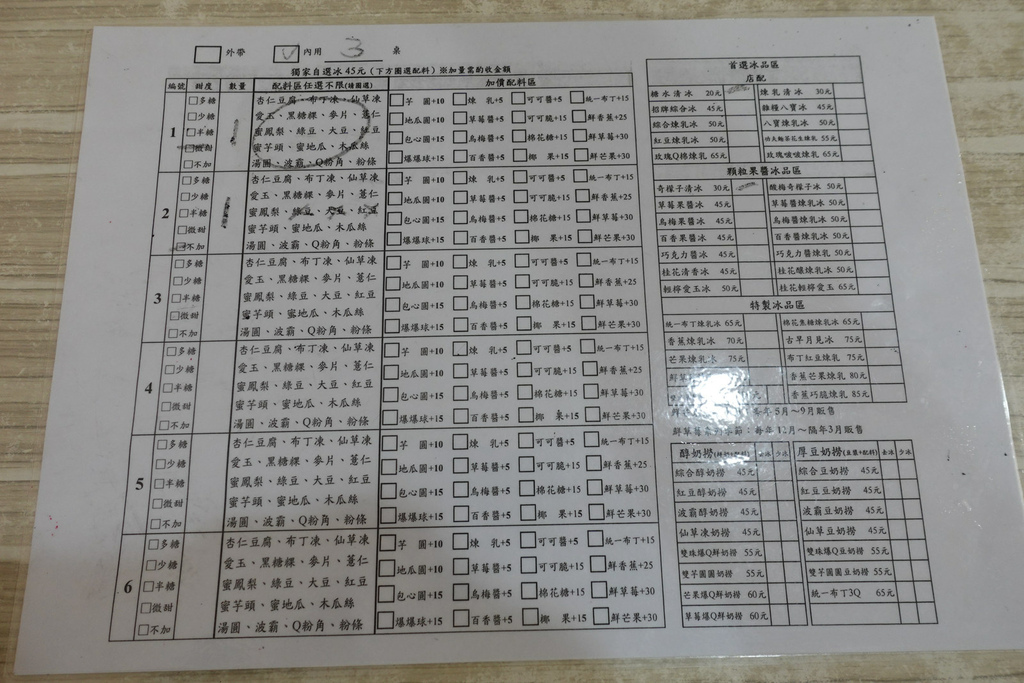 外帶 ☑內用 3 桌
獨家自選冰45元(下方圈選配料)※加量需酌收金額
編號 甜度 數量 配料區任選不限(請圈選) 加價配料區
1
□多糖 杏仁豆腐、布丁凍、仙草凍 □芋 圓+10 □煉 乳+5 □可可醬+5 □統一布丁+15
□少糖 愛玉、黑糖粿、麥片、薏仁 □地瓜圓+10 □草莓醬+5 □可可脆+15 □鮮香蕉+25
□半糖 蜜鳳梨、綠豆、大豆、紅豆 □包心圓+15 □烏梅醬+5 □棉花糖+15 □鮮草莓+30
□微甜 蜜芋頭、蜜地瓜、木瓜絲 □爆爆球+15 □百香醬+5 □椰 果+15 □鮮芒果+30
□不加 湯圓、波霸、Q粉角、粉條
2
□多糖 杏仁豆腐、布丁凍、仙草凍 □芋 圓+10 □煉 乳+5 □可可醬+5 □統一布丁+15
□少糖 愛玉、黑糖粿、麥片、薏仁 □地瓜圓+10 □草莓醬+5 □可可脆+15 □鮮香蕉+25
□半糖 蜜鳳梨、綠豆、大豆、紅豆 □包心圓+15 □烏梅醬+5 □棉花糖+15 □鮮草莓+30
□微甜 蜜芋頭、蜜地瓜、木瓜絲 □爆爆球+15 □百香醬+5 □椰 果+15 □鮮芒果+30
□不加 湯圓、波霸、Q粉角、粉條
3
□多糖 杏仁豆腐、布丁凍、仙草凍 □芋 圓+10 □煉 乳+5 □可可醬+5 □統一布丁+15
□少糖 愛玉、黑糖粿、麥片、薏仁 □地瓜圓+10 □草莓醬+5 □可可脆+15 □鮮香蕉+25
□半糖 蜜鳳梨、綠豆、大豆、紅豆 □包心圓+15 □烏梅醬+5 □棉花糖+15 □鮮草莓+30
□微甜 蜜芋頭、蜜地瓜、木瓜絲 □爆爆球+15 □百香醬+5 □椰 果+15 □鮮芒果+30
□不加 湯圓、波霸、Q粉角、粉條
4
□多糖 杏仁豆腐、布丁凍、仙草凍 □芋 圓+10 □煉 乳+5 □可可醬+5 □統一布丁+15
□少糖 愛玉、黑糖粿、麥片、薏仁 □地瓜圓+10 □草莓醬+5 □可可脆+15 □鮮香蕉+25
□半糖 蜜鳳梨、綠豆、大豆、紅豆 □包心圓+15 □烏梅醬+5 □棉花糖+15 □鮮草莓+30
□微甜 蜜芋頭、蜜地瓜、木瓜絲 □爆爆球+15 □百香醬+5 □椰 果+15 □鮮芒果+30
□不加 湯圓、波霸、Q粉角、粉條
5
□多糖 杏仁豆腐、布丁凍、仙草凍 □芋 圓+10 □煉 乳+5 □可可醬+5 □統一布丁+15
□少糖 愛玉、黑糖粿、麥片、薏仁 □地瓜圓+10 □草莓醬+5 □可可脆+15 □鮮香蕉+25
□半糖 蜜鳳梨、綠豆、大豆、紅豆 □包心圓+15 □烏梅醬+5 □棉花糖+15 □鮮草莓+30
□微甜 蜜芋頭、蜜地瓜、木瓜絲 □爆爆球+15 □百香醬+5 □椰 果+15 □鮮芒果+30
□不加 湯圓、波霸、Q粉角、粉條
6
□多糖 杏仁豆腐、布丁凍、仙草凍 □芋 圓+10 □煉 乳+5 □可可醬+5 □統一布丁+15
□少糖 愛玉、黑糖粿、麥片、薏仁 □地瓜圓+10 □草莓醬+5 □可可脆+15 □鮮香蕉+25
□半糖 蜜鳳梨、綠豆、大豆、紅豆 □包心圓+15 □烏梅醬+5 □棉花糖+15 □鮮草莓+30
□微甜 蜜芋頭、蜜地瓜、木瓜絲 □爆爆球+15 □百香醬+5 □椰 果+15 □鮮芒果+30
□不加 湯圓、波霸、Q粉角、粉條
首選冰品區
店配
糖水清冰 20元 煉乳清冰 30元
招牌綜合冰 45元 雜糧八寶冰 45元
綜合煉乳冰 50元 八寶煉乳冰 50元
紅豆煉乳冰 50元 功夫麵茶花生煉乳 55元
玫瑰Q棉煉乳 65元 玫瑰啵啵煉乳 65元
顆粒果醬冰品區
奇檬子清冰 30元 酸梅奇檬子冰 50元
草莓果醬冰 45元 草莓醬煉乳冰 50元
烏梅果醬冰 45元 烏梅醬煉乳冰 50元
百香果醬冰 45元 百香醬煉乳冰 50元
巧克力醬冰 45元 巧克力醬煉乳 50元
桂花清香冰 45元 桂花釀煉乳冰 50元
輕檸愛玉冰 50元 桂花輕檸愛玉 65元
特製冰品區
統一布丁煉乳冰 65元 棉花黑糖煉乳冰 65元
香蕉煉乳冰 70元 古早月見冰 75元
芒果煉乳冰 75元 布丁紅豆煉乳 75元
鮮草 香蕉芒果煉乳 80元
香蕉巧脆煉乳 85元
鮮 年5月~9月販售
鮮草莓 季節:每年12月~隔年3月販售
醇奶撈(鮮奶+配料) 去冰 少冰 厚豆奶撈(豆漿+配料) 去冰 少冰
綜合醇奶撈 45元 綜合豆奶撈 45元
紅豆醇奶撈 45元 紅豆豆奶撈 45元
波霸醇奶撈 45元 波霸豆奶撈 45元
仙草凍奶撈 45元 仙草豆奶撈 45元
雙珠爆Q鮮奶撈 55元 雙珠爆Q豆奶撈 55元
雙芋圓圓奶撈 55元 雙芋圓圓豆奶撈 55元
芒果爆Q鮮奶撈 60元 統一布丁3Q 65元
草莓爆Q鮮奶撈 60元